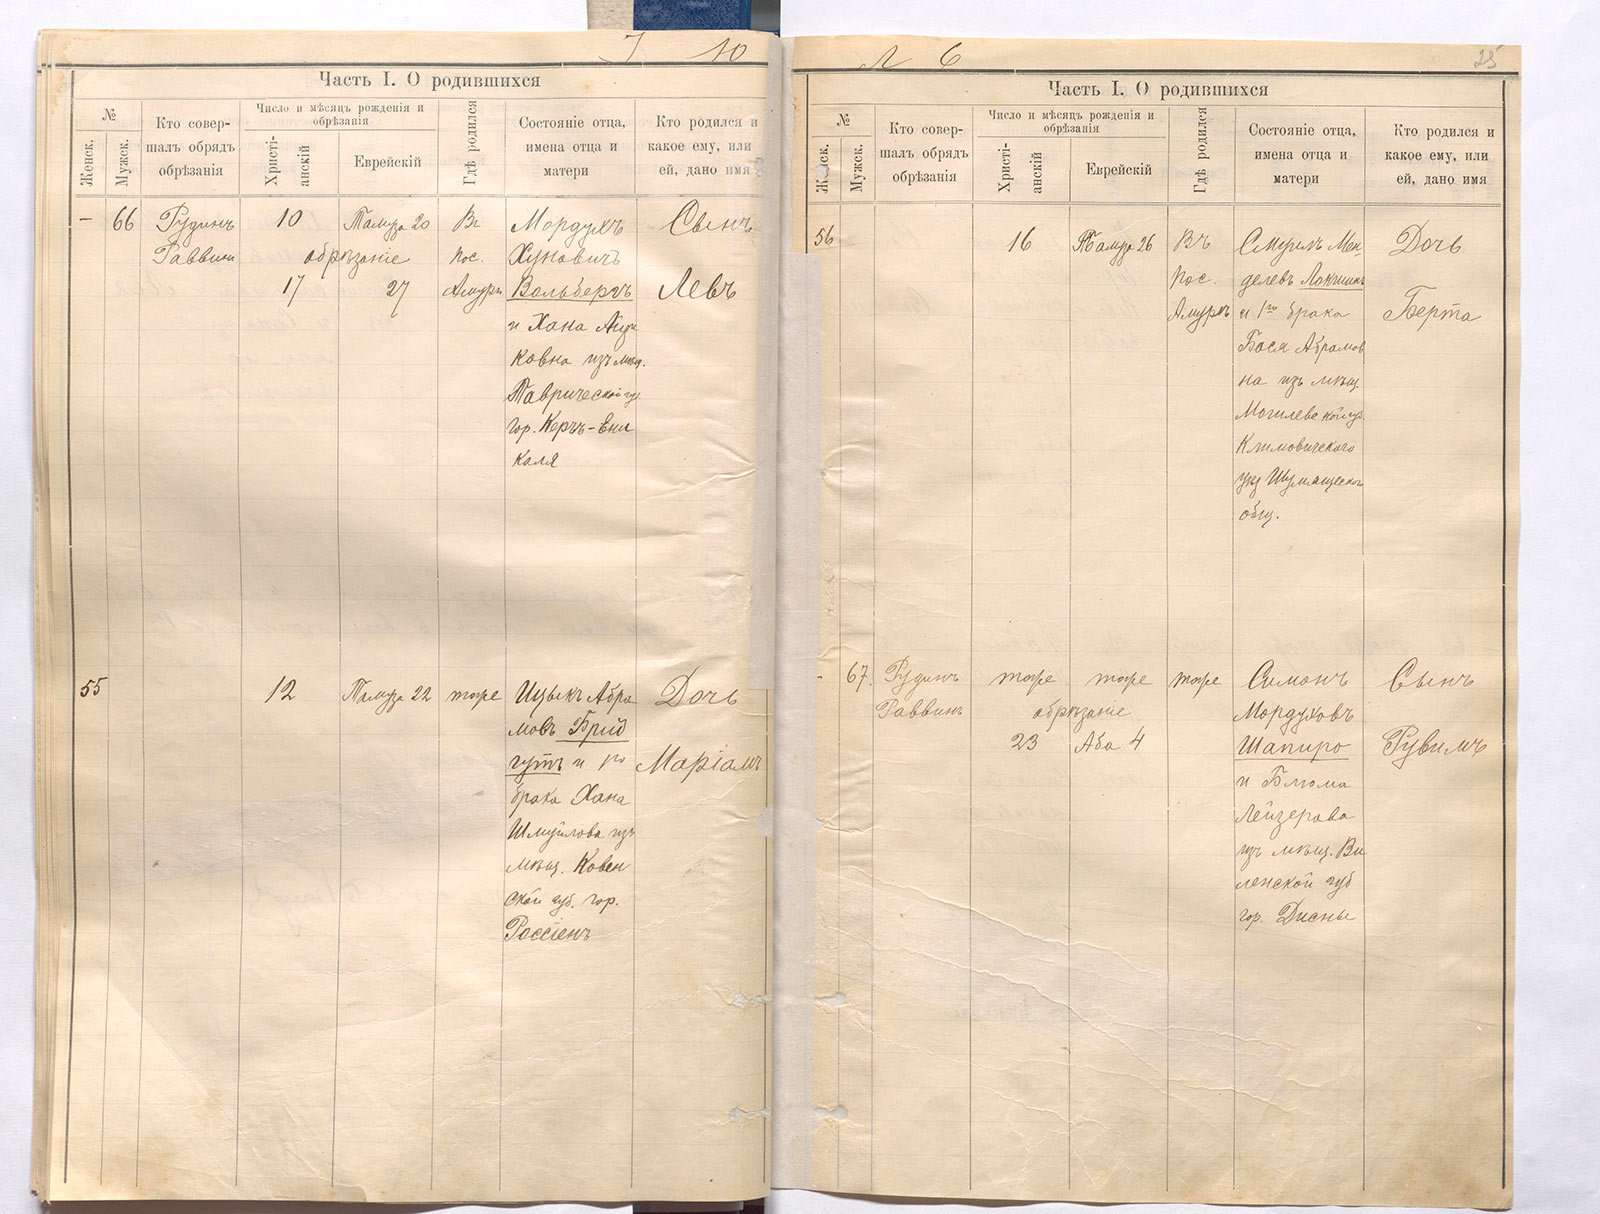 I 10
Часть I. О родившихся
№
Женск.
Мужск.
Кто совер-
шалъ обрядъ
обрѣзанія
Число и мѣсяцъ рожденія и
обрѣзанія
Христі-
анскій
Еврейскій
Гдѣ родился
Состояніе отца,
имена отца и
матери
Кто родился и
какое ему, или
ей, дано имя
– 66
Рудинъ
Раввинъ
10
Тамуза 20
обрѣзаніе
17
27
Въ
пос.
Амуръ
Мордухъ
Хуновичъ
Вольбергъ
и Хана
ковна изъ мѣщ.
Таврической гу.
гор. Керчъ-Ени
каля
Сынъ
Левъ
55
12
Тамуза 22
тоже
Ицыкъ Абра
мовъ Брид
гутъ и 1го
брака Хана
Шмуйлова изъ
мѣщ. Ковен
ской губ. гор.
Россіенъ
Дочь
Маріамъ
Л 6
25
Часть I. О родившихся
№
Женск.
Мужск.
Кто совер-
шалъ обрядъ
обрѣзанія
Число и мѣсяцъ рожденія и
обрѣзанія
Христі-
анскій
Еврейскій
Гдѣ родился
Состояніе отца,
имена отца и
матери
Кто родился и
какое ему, или
ей, дано имя
56
16
Тамуза 26
Въ
пос.
Амуръ
Смуилъ Мен-
делевъ Локшинъ
и 1го брака
Бася Абрамов
на изъ мѣщ.
Могилевской губ.
Климовическаго
у. Шумячскаго
общ.
Дочь
Берта
- 67.
Рудинъ
Раввинъ
тоже
тоже
обрѣзаніе
23
Аба 4
тоже
Симонъ
Мордуховъ
Шапиро
и Блюма
Лейзерова
изъ мѣщ. Ви
ленской губ
гор. Дисны
Сынъ
Рувимъ